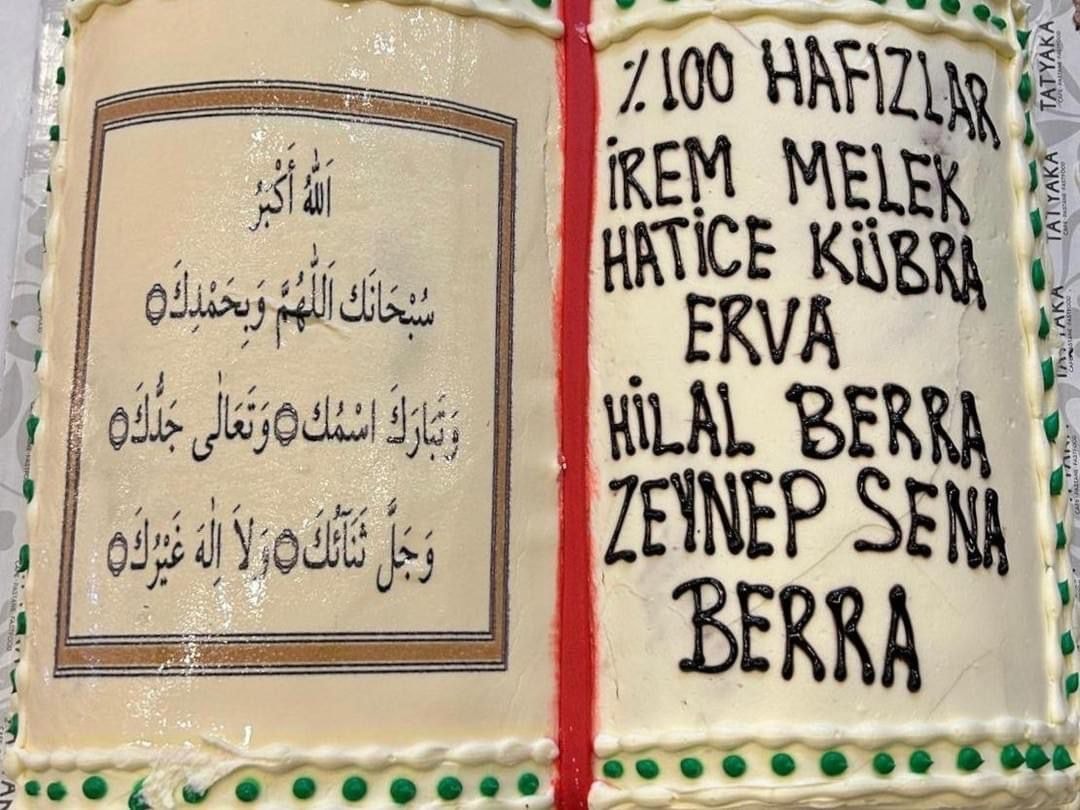 اَللهُ أَكْبَرُ
سُبْحَانَكَ اَللّٰهُمَّ وَبِحَمْدِكَ
وَتَبَارَكَ اسْمُكَ وَتَعَالٰى جَدُّكَ
وَجَلَّ ثَنَآئُكَ وَلاَ اِلٰهَ غَيْرُكَ
%100 HAFIZLAR
İREM MELEK
HATİCE KÜBRA
ERVA
HİLAL BERRA
ZEYNEP SENA
BERRA
TATYAKA
TATYAKA